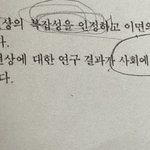 현상의 복잡성을 인정하고 이면의
다.
현상에 대한 연구 결과가 사회에
다.